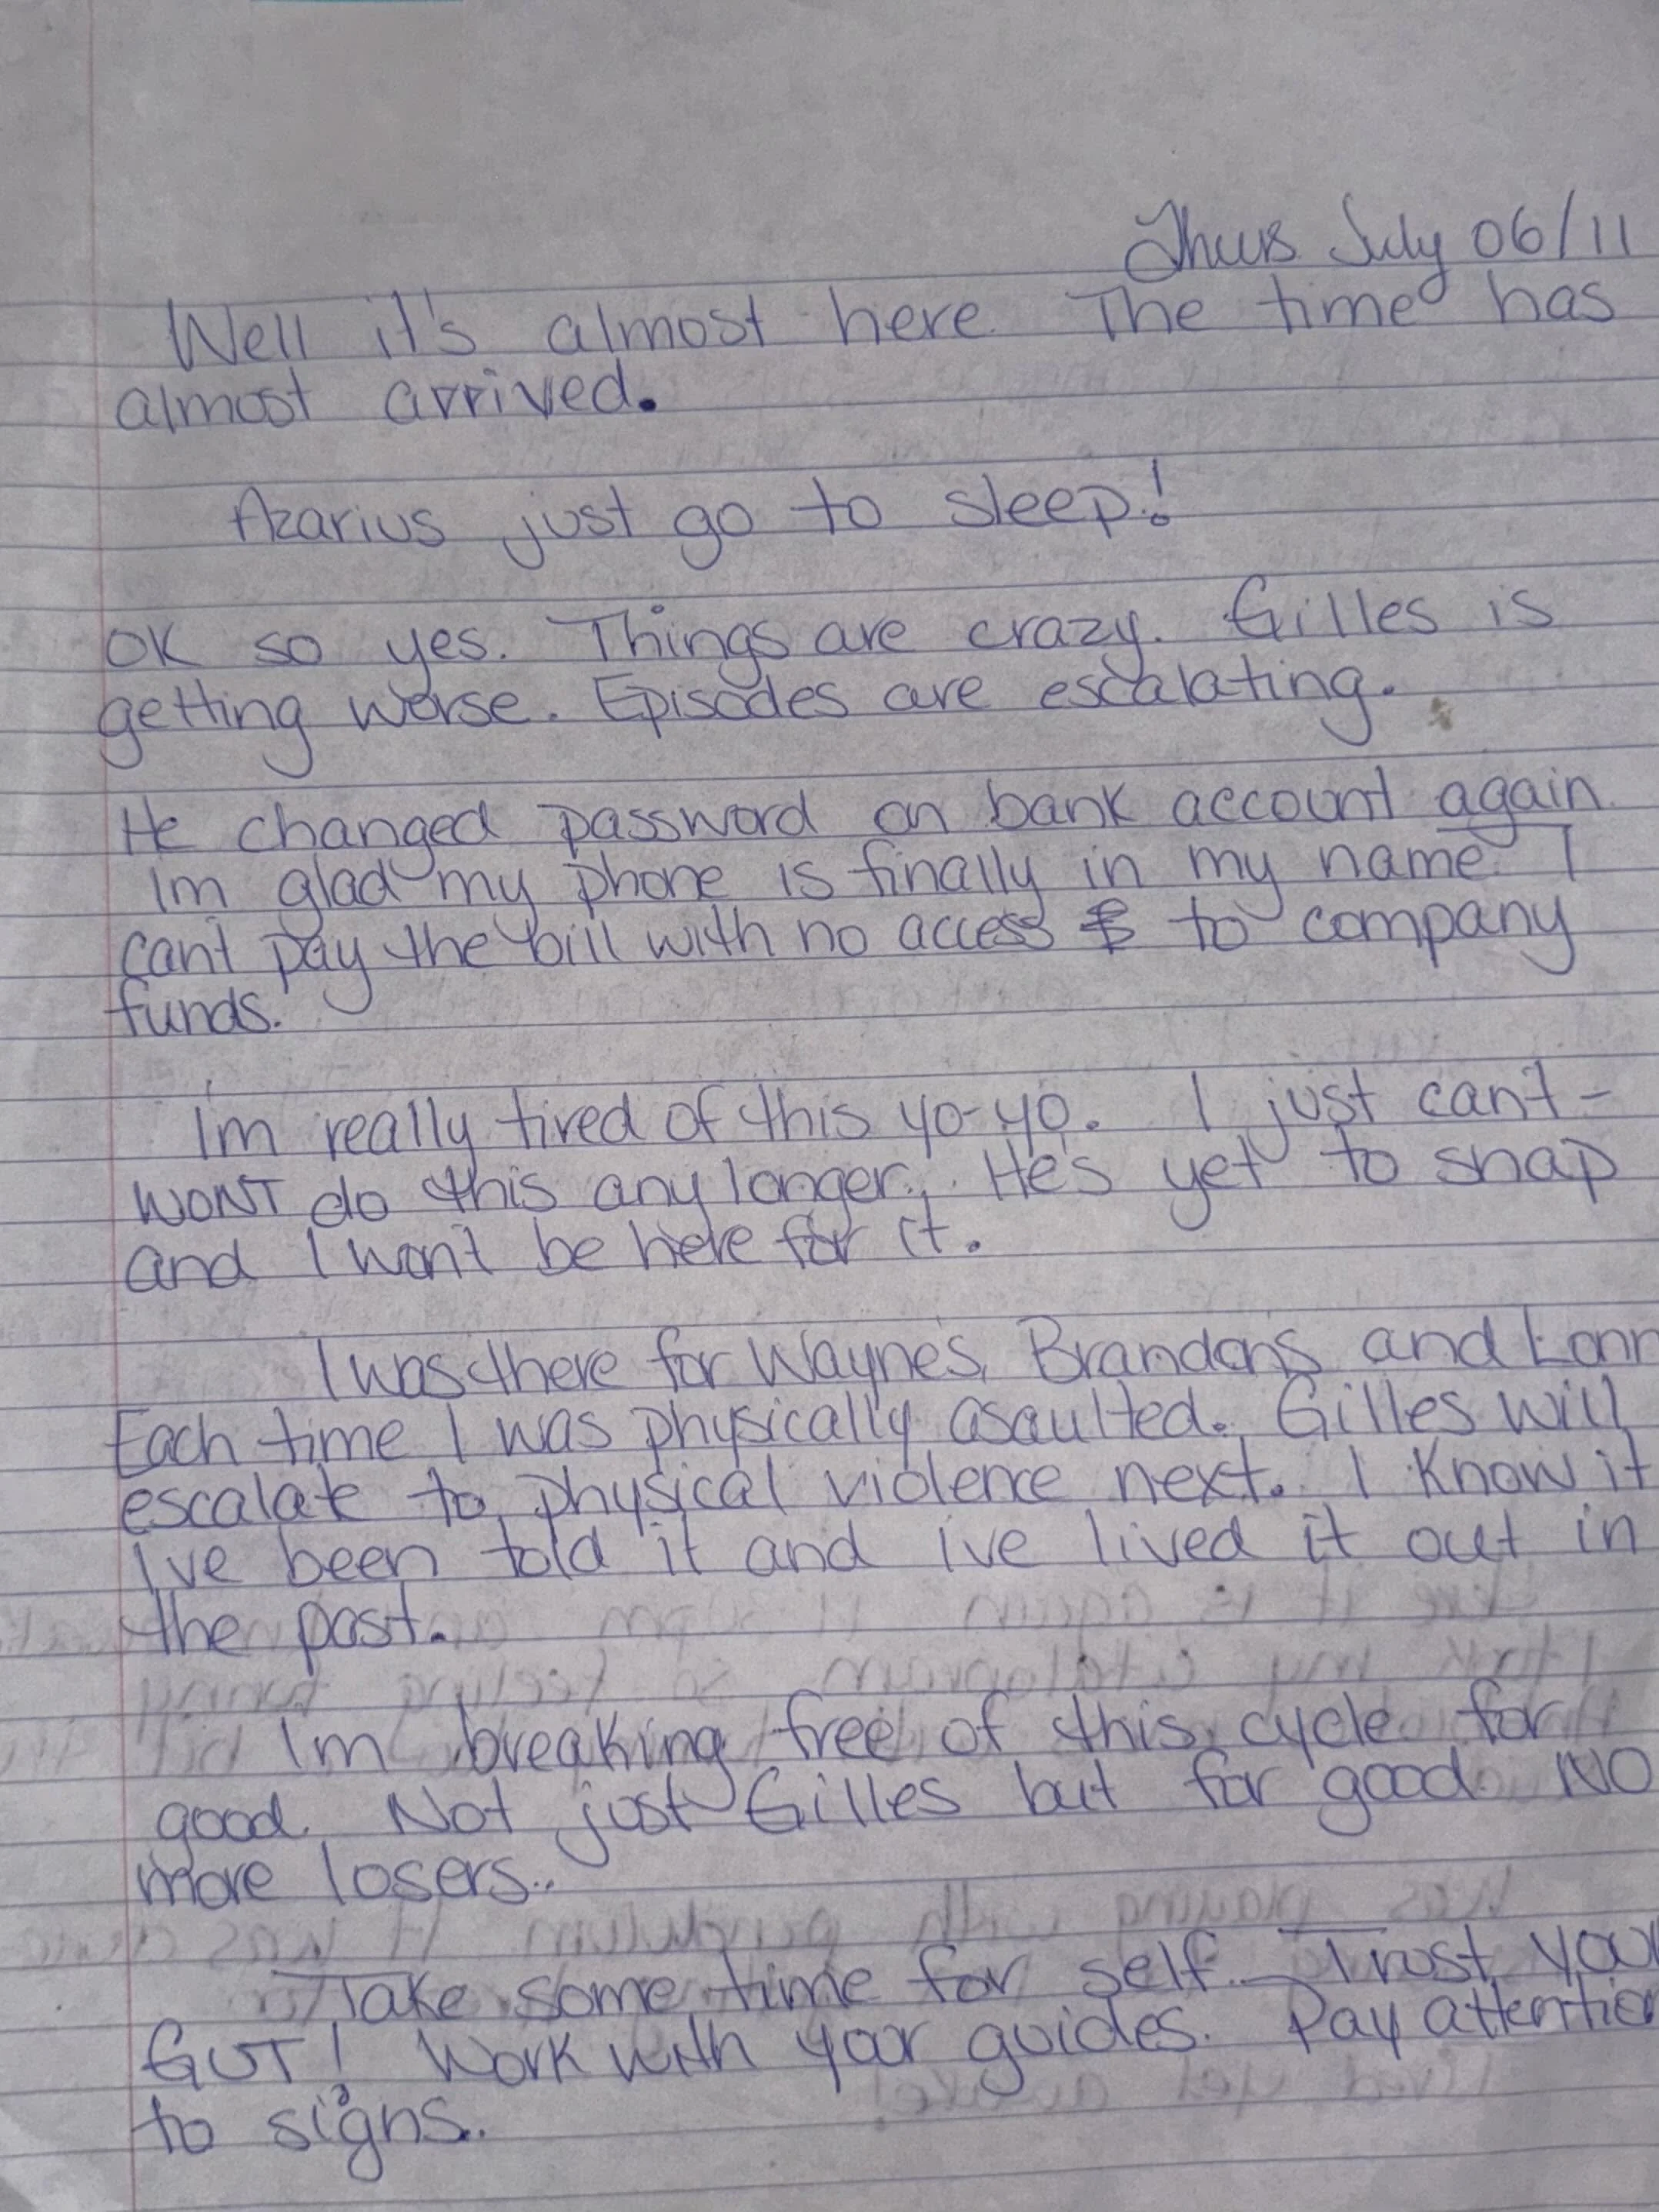 Thurs July 06/11
Well it's almost here. The time has
almost arrived.
Azarius just go to sleep!
OK so yes. Things are crazy. Gilles is
getting worse. Episodes are escalating.
He changed password on bank account again.
Im glad my phone is finally in my name. I
can't pay the bill with no access to company
funds.
I'm really tired of this yo-yo. I just can't -
WONT do this any longer. He's yet to snap
and I won't be here for it.
I was there for Wayne's, Brandon's and Lonn
Each time I was physically asaulted. Gilles will
escalate to physical violence next. I know it
I've been told it and ive lived it out in
the past.
Im breaking free of this cycle for
good. Not just Gilles but for good. NO
more losers..
Take some time for self. Trust your
GUT! Work with your guides. Pay attention
to signs..